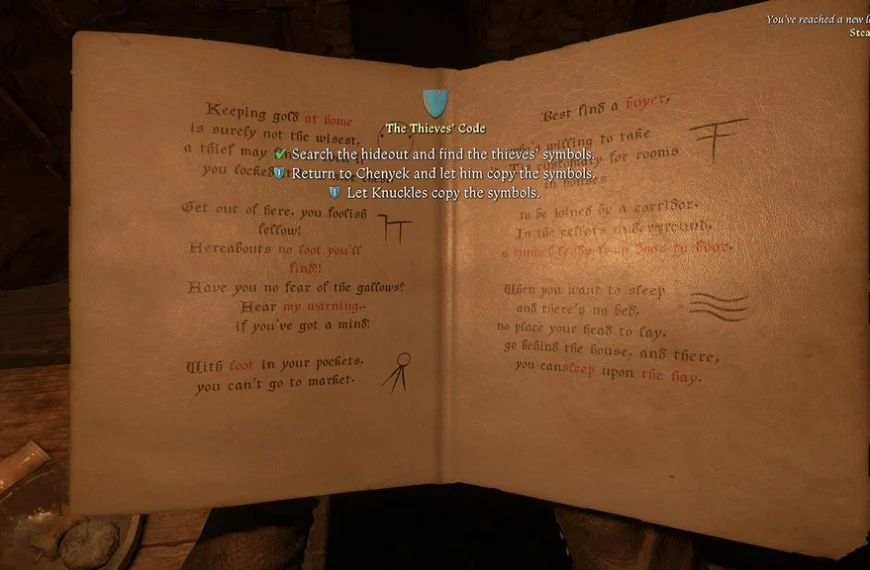 You've reached a new
The Thieves' Code
Search the hideout and find the thieves' symbols.
Return to Chenyek and let him copy the symbols.
Let Knuckles copy the symbols.
Keeping gold at home
is surely not the wisest,
a thief may
you locked
Get out of here, you foolish
fellow!
Hereabouts no loot you'll
find!!
Have you no fear of the gallows?
Hear my warning,
if you've got a mind!
With loot in your pockets,
you can't go to market.
Best find a buyer,
willing to take
customary for rooms
in houses
to be joined by a corridor.
In the cellars underground,
a tunnel leads from door to door.
When you want to sleep
and there's no bed,
no place your head to lay,
go behind the house, and there,
you can sleep upon the hay.